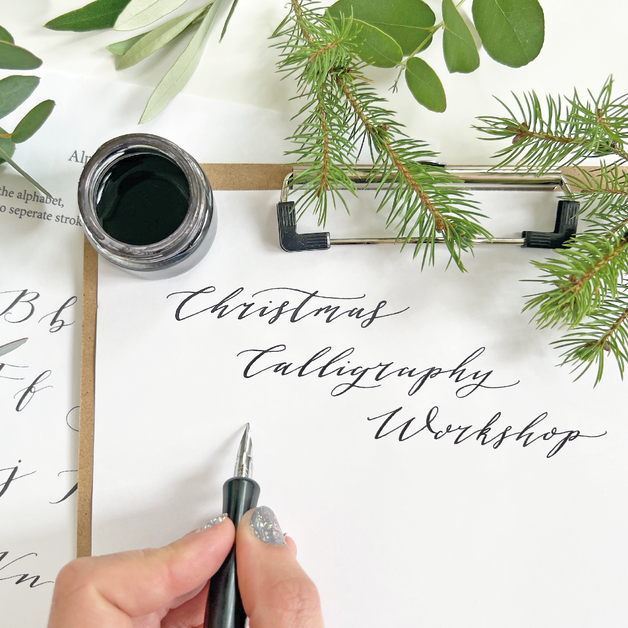 the alphabet,
to seperate
B b
f
j
n
Christmas
Calligraphy
Workshop